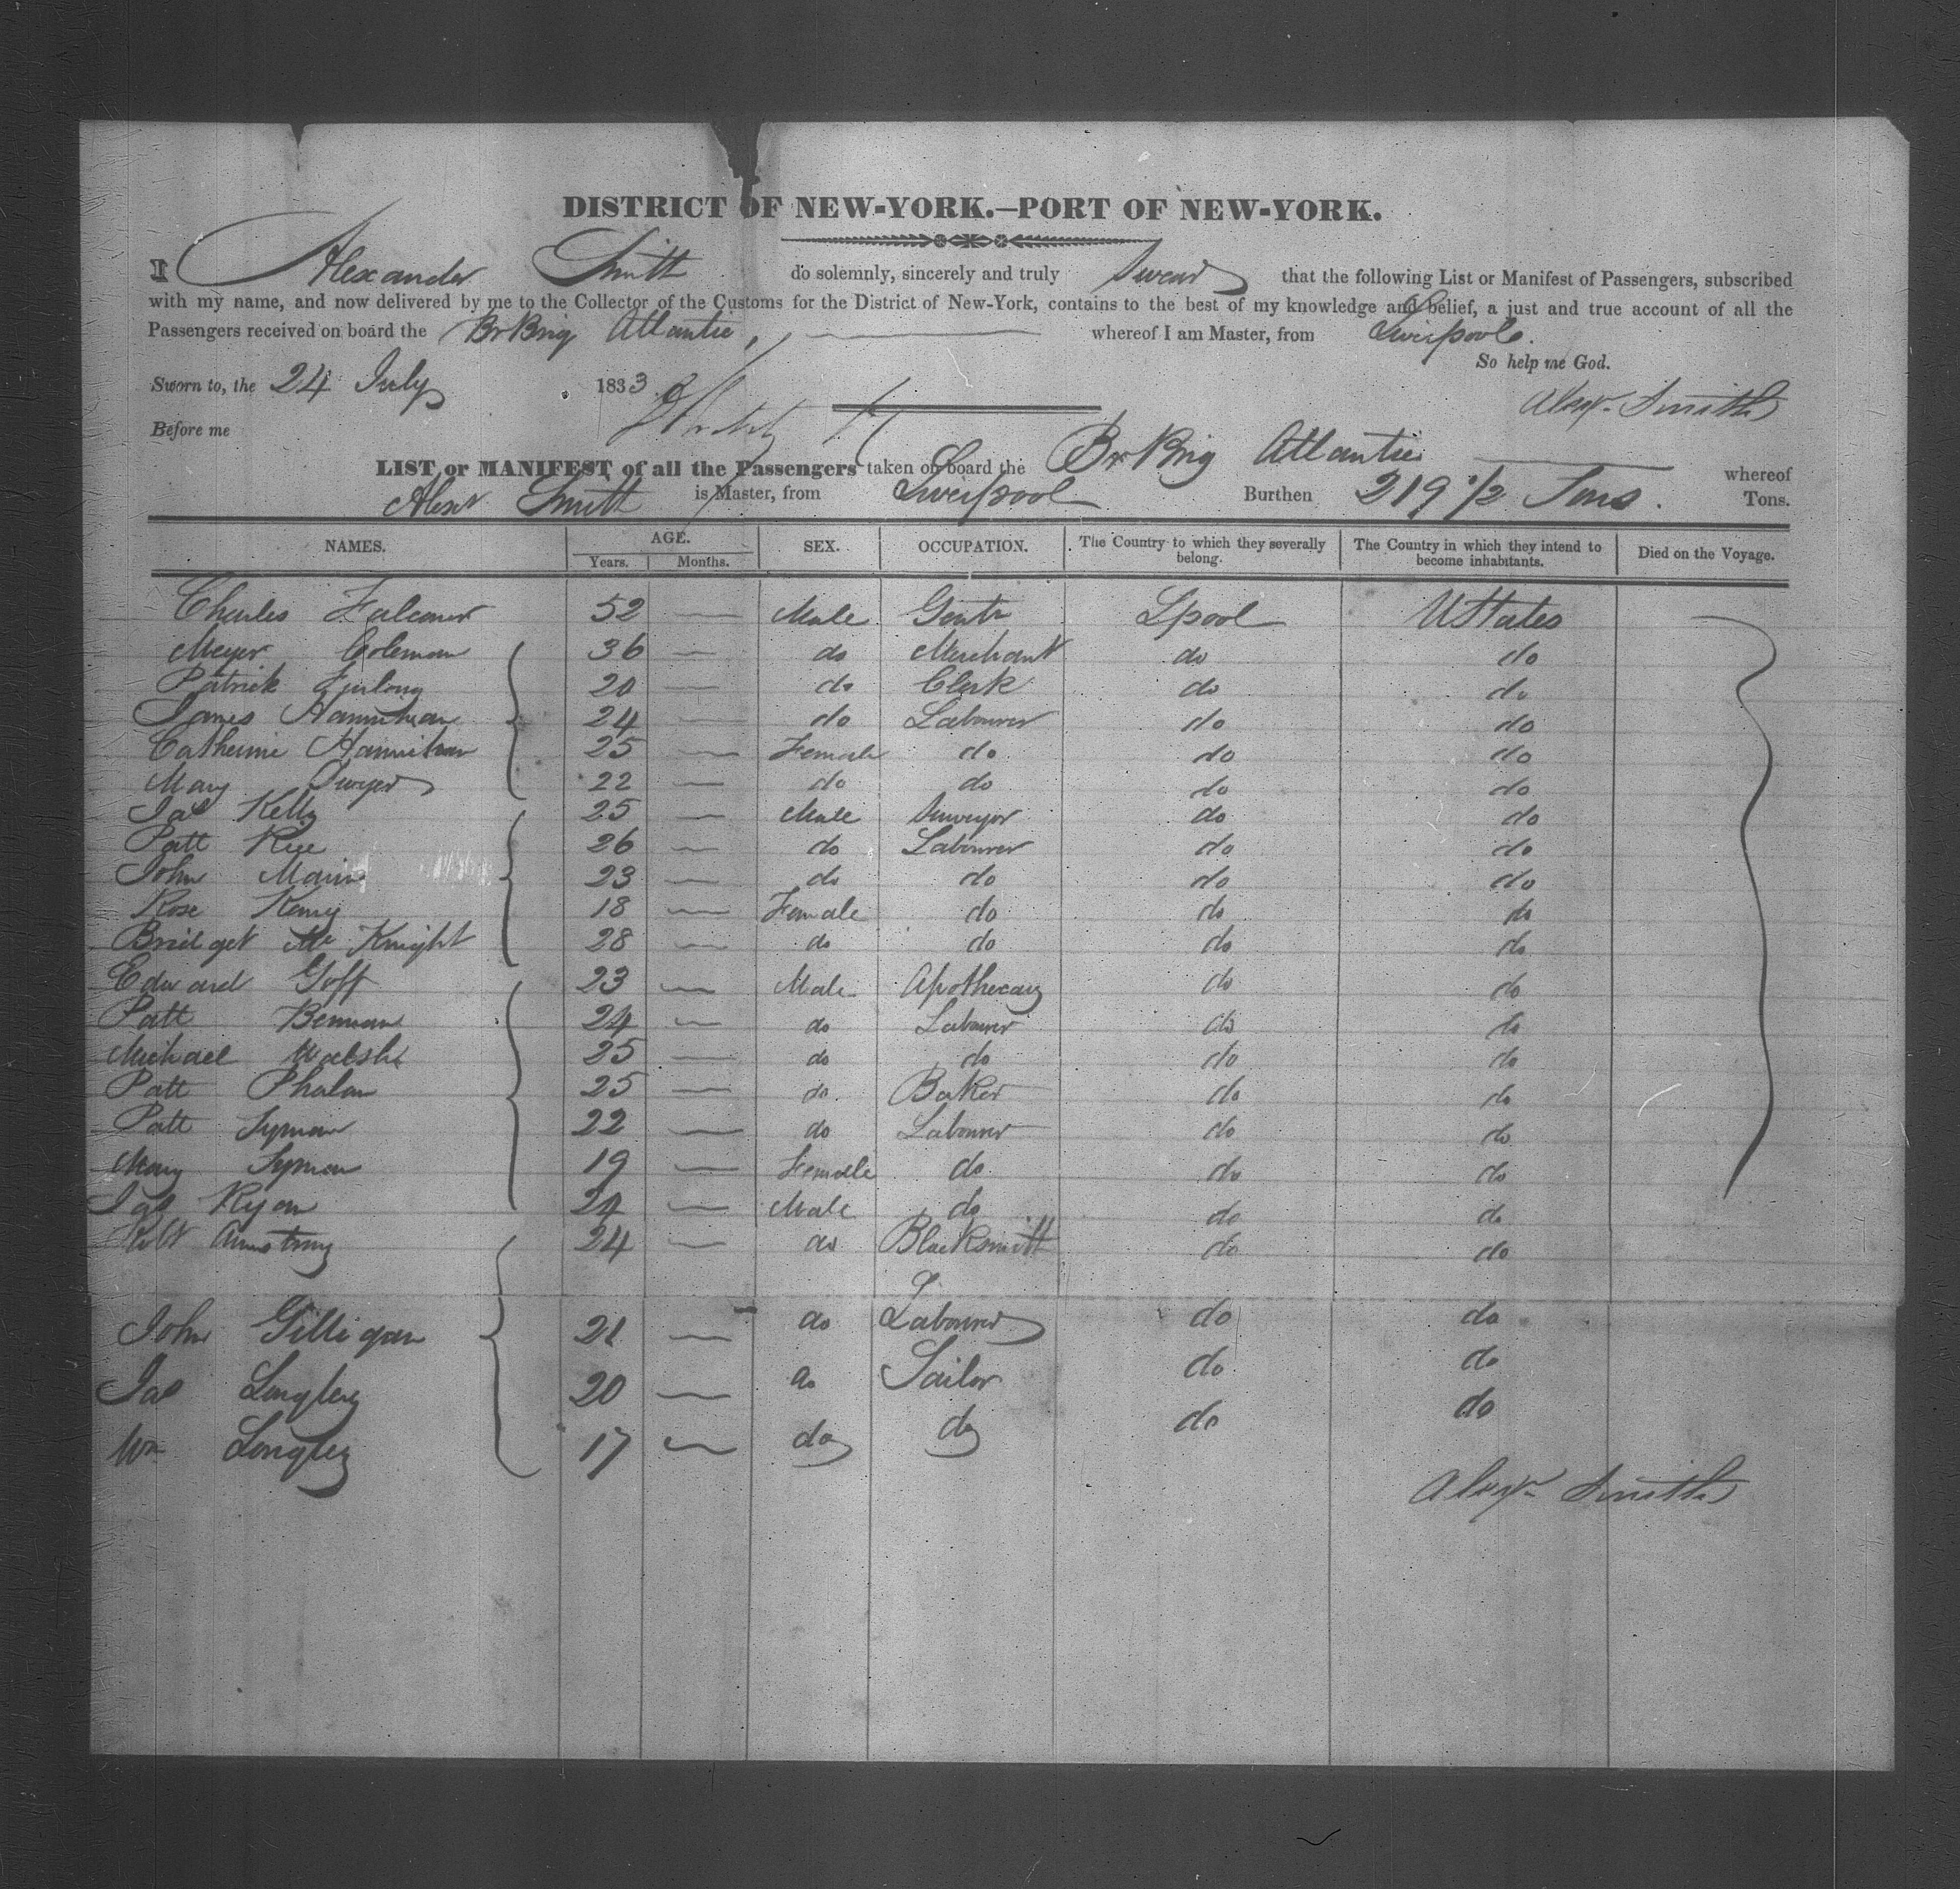 DISTRICT OF NEW-YORK.—PORT OF NEW-YORK.
I Alexander Smith do solemnly, sincerely and truly Swear that the following List or Manifest of Passengers, subscribed
with my name, and now delivered by me to the Collector of the Customs for the District of New-York, contains to the best of my knowledge and belief, a just and true account of all the
Passengers received on board the Br Brig Atlantic, whereof I am Master, from Liverpool.
So help me God.
Sworn to, the 24 July 1833
Alexr. Smith
Before me
LIST or MANIFEST of all the Passengers taken on board the Br Brig Atlantic whereof
Alexr Smith is Master, from Liverpool Burthen 219 1/2 Tons. Tons.
NAMES. AGE. SEX. OCCUPATION. The Country to which they severally belong. The Country in which they intend to become inhabitants. Died on the Voyage.
Years. Months.
Charles Falconer 52 — Male Gentn Lpool UStates
Meyer Coleman 36 — do Merchant do do
Patrick Furlong 20 — do Clerk do do
James Hannihan 24 — do Labourer do do
Catherine Hannihan 25 — Female do do do
Mary Dwyer 22 — do do do do
Jas Kelly 25 — Male Surveyor do do
Patt Rice 26 — do Labourer do do
John 23 — do do do do
Rose Kenny 18 — Female do do do
Bridget Mc Knight 28 — do do do do
Edward Goff 23 — Male Apothecary do do
Patt 24 — do Labourer do do
Michael Walsh 25 — do do do do
Patt Phalan 25 — do Baker do do
Patt Lyman 22 — do Labourer do do
Mary Lyman 19 — Female do do do
Jas Ryan 24 — Male do do do
Robt Armstrong 24 — do Blacksmith do do
John Gilligan 21 — do Labourer do do
Jas Longley 20 — do Sailor do do
Wm Longley 17 — do do do do
Alexr. Smith